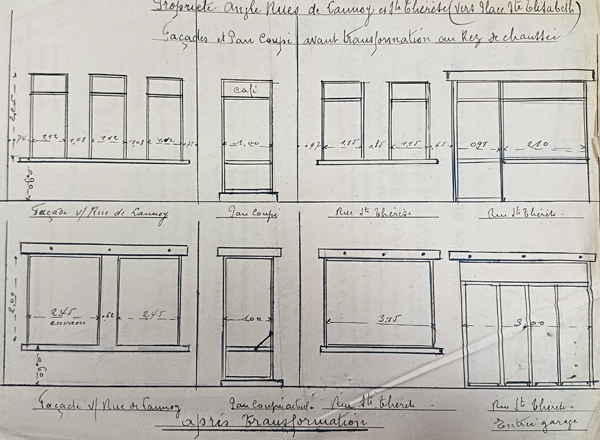 Propriété Angle Rues de Lannoy et Ste Thérèse (vers Place Ste Elisabeth)
Façades et Pan Coupé avant transformation au Rez de chaussée
café
2,25
0,74 1,12 1,08 1,12 1,08 1,12
1.00
0,47 1,15 0,85 1,15 0,65
0,97 2,10
0,90
Façade v/ Rue de Lannoy Pan Coupé Rue Ste Thérèse Rue Ste Thérèse
2,00
2.45 environ 0,62 2.45
1.00
3,75
3,00
0,90
Façade v/ Rue de Lannoy Pan Coupé actuel Rue Ste Thérèse Rue Ste Thérèse
Entrée garage
après transformation